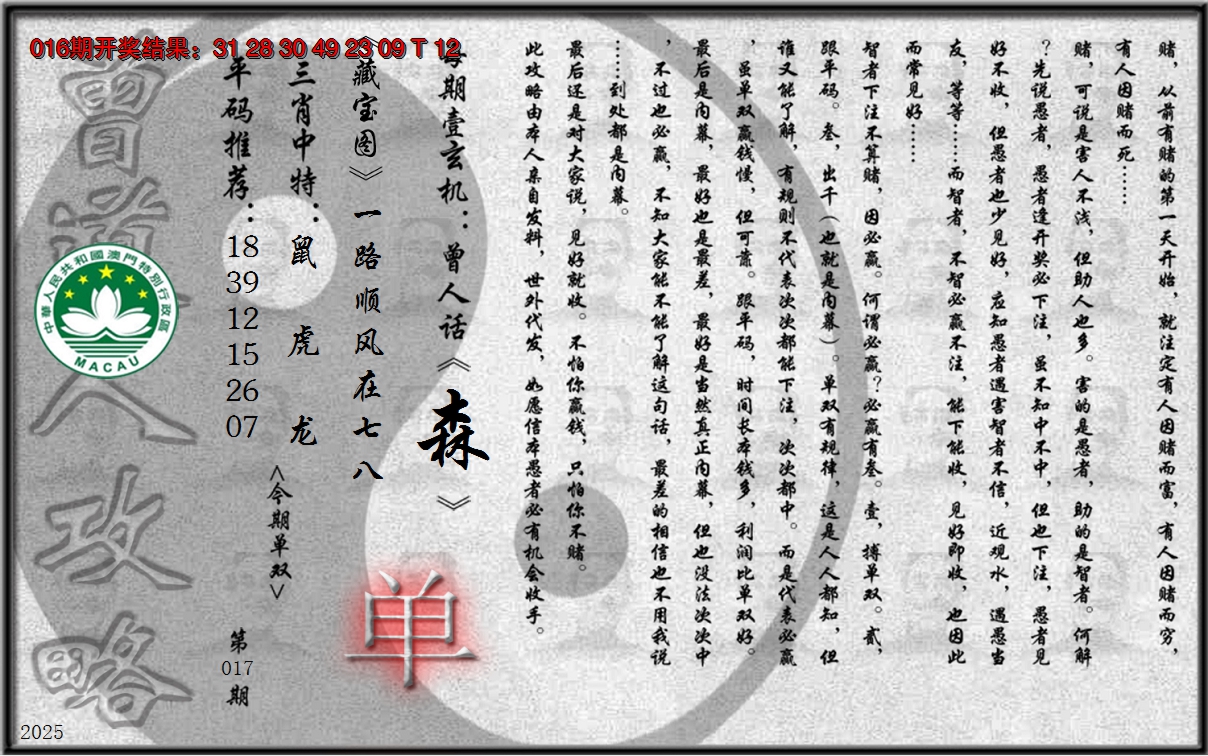 016期开奖结果：31 28 30 49 23 09 T 12
赌，从前有赌的第一天开始，就注定有人因赌而富，有人因赌而穷，
有人因赌而死……
赌，可说是害人不浅，但助人也多。害的是愚者，助的是智者。何解
？先说愚者，愚者逢开奖必下注，虽不知中不中，但也下注，愚者见
好不收，但愚者也少见好，应知愚者遇害智者不信，近观水，遇愚当
友，等等……而智者，不智必赢不注，能下能收，见好即收，也因此
而常见好……
智者下注不算赌，因必赢。何谓必赢？必赢有叁。壹，搏单双。贰，
跟平码。叁，出千（也就是内幕）。单双有规律，这是人人都知，但
谁又能了解，有规则不代表次次都能下注，次次都中。而是代表必赢
，虽单双赢钱慢，但可靠。跟平码，时间长本钱多，利润比单双好。
最后是内幕，最好也是最差，最好是当然真正内幕，但也没法次次中
，不过也必赢，不知大家能不能了解这句话，最差的相信也不用我说
……到处都是内幕。
最后还是对大家说，见好就收。不怕你赢钱，只怕你不赌。
此攻略由本人亲自发料，世外代发，如愿信本愚者必有机会收手。
每期壹玄机：曾人话《森》
《藏宝图》一路顺风在七八
三肖中特：鼠 虎 龙
<今期单双>
单
平码推荐：18 39 12 15 26 07
第017期
曾道人攻略
中華人民共和國澳門特別行政區
MACAU
2025